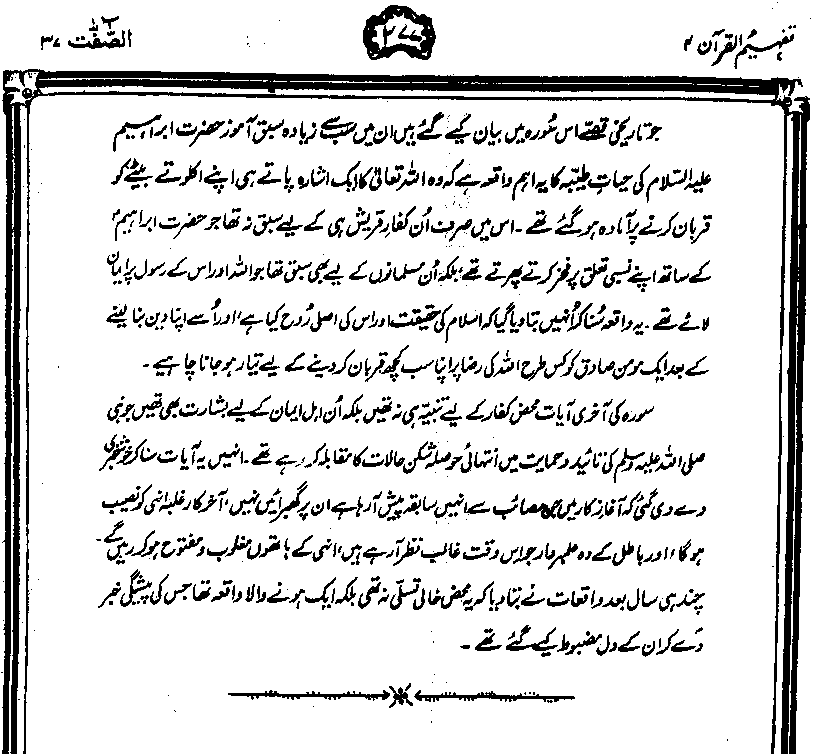 تفہیم القرآن ۴
۲۷۷
الصّٰفّٰت ۳۷
جو تاریخی قصّے اس سُورہ میں بیان کیے گئے ہیں ان میں سب سے زیادہ سبق آموز حضرت ابراہیم
علیہ السّلام کی حیاتِ طیّبہ کا یہ اہم واقعہ ہے کہ وہ اللہ تعالیٰ کا ایک اشارہ پاتے ہی اپنے اکلوتے بیٹے کو
قربان کرنے پر آمادہ ہو گئے تھے ۔ اس میں صرف اُن کفارِ قریش ہی کے لیے سبق نہ تھا جو حضرت ابراہیمؑ
کے ساتھ اپنے نسبی تعلق پر فخر کرتے پھرتے تھے، بلکہ اُن مسلمانوں کے لیے بھی سبق تھا جو اللہ اور اس کے رسول پر ایمان
لائے تھے ۔ یہ واقعہ سُنا کر اُنہیں بتا دیا گیا کہ اسلام کی حقیقت اور اس کی اصلی رُوح کیا ہے، اور اُسے اپنا دین بنا لینے
کے بعد ایک مومن صادق کو کس طرح اللہ کی رضا پر اپنا سب کچھ قربان کر دینے کے لیے تیار ہو جانا چاہیے ۔
سورہ کی آخری آیات محض کفار کے لیے تنبیہ ہی نہ تھیں بلکہ اُن اہل ایمان کے لیے بشارت بھی تھیں جو نبی
صلی اللہ علیہ وسلم کی تائید و حمایت میں انتہائی حوصلہ شکن حالات کا مقابلہ کر رہے تھے ۔ انہیں یہ آیات سنا کر خوشخبری
دے دی گئی کہ آغاز کار میں جن مصائب سے انہیں سابقہ پیش آ رہا ہے ان پر گھبرائیں نہیں، آخر کار غلبہ انہی کو نصیب
ہو گا، اور باطل کے وہ علمبردار جو اس وقت غالب نظر آ رہے ہیں، انہی کے ہاتھوں مغلوب و مفتوح ہو کر رہیں گے ۔
چند ہی سال بعد واقعات نے بتا دیا کہ یہ محض خالی تسلّی نہ تھی بلکہ ایک ہونے والا واقعہ تھا جس کی پیشگی خبر
دے کر ان کے دل مضبوط کیے گئے تھے ۔